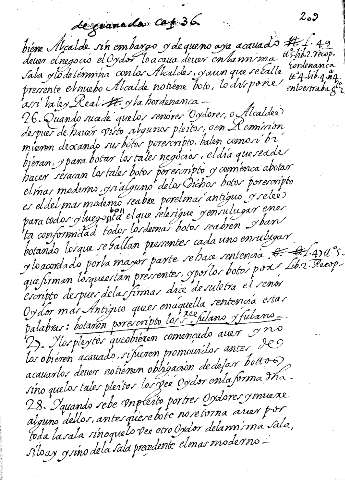 de granada cap. 36
203
biene Alcalde sin embargo y de que no aya acavado
de ver el negocio el Oydor lo acava de ver en la misma
sala y lo determina con los Alcaldes, y aunque se halle
presente el nuebo Alcalde no tiene boto, lo dispone
assi la ley Real # y la hordenanca —
26. Quando suçede que los señores Oydores, o Alcaldes
despues de haver visto algunos pleitos, o en Remission
mueren dexando sus botos por escripto valen como si bi
bieran, y para botar los tales negocios, el dia que se a de
hacer se sacan los tales botos por escripto y comiença a botar
el mas moderno, y si alguno de los Dichos botos por escripto
es el del mas moderno se abre por el mas antiguo y se lee
para todos y luego bota el que se le sigue y en su lugar en es
ta conformidad todos los demas botos se abren y ban
botando los que se hallan presentes cada uno en su lugar
y lo acordado por la mayor parte se haçe sentencia #
que firman los que estan presentes, y por los botos por es
cripto despues de las firmas dice de su letra el señor
Oydor mas Antiguo que es en aquella sentencia estas
palabras: botaron por escripto los s.res fulano y fulano —
27. Los pleytos que obieren començado a ver y no
los obieren acavado, si fueren promovidos antes de
acavarlos de ver no tienen obligacion de dejar botto
sino que los tales pleitos los vee Oydor en la forma dha.
28. Y quando se be un pleito por tres Oydores y muere
alguno dellos, antes que se bote no se torna a ver por
toda la sala sino que lo vee otro Oydor de la misma sala,
si lo ay y si no de la sala precedente el mas moderno —
# l. 49
lib. 2. Recop.
hordenança
# l. 47. t. 5.
Lib. 2. Recop.